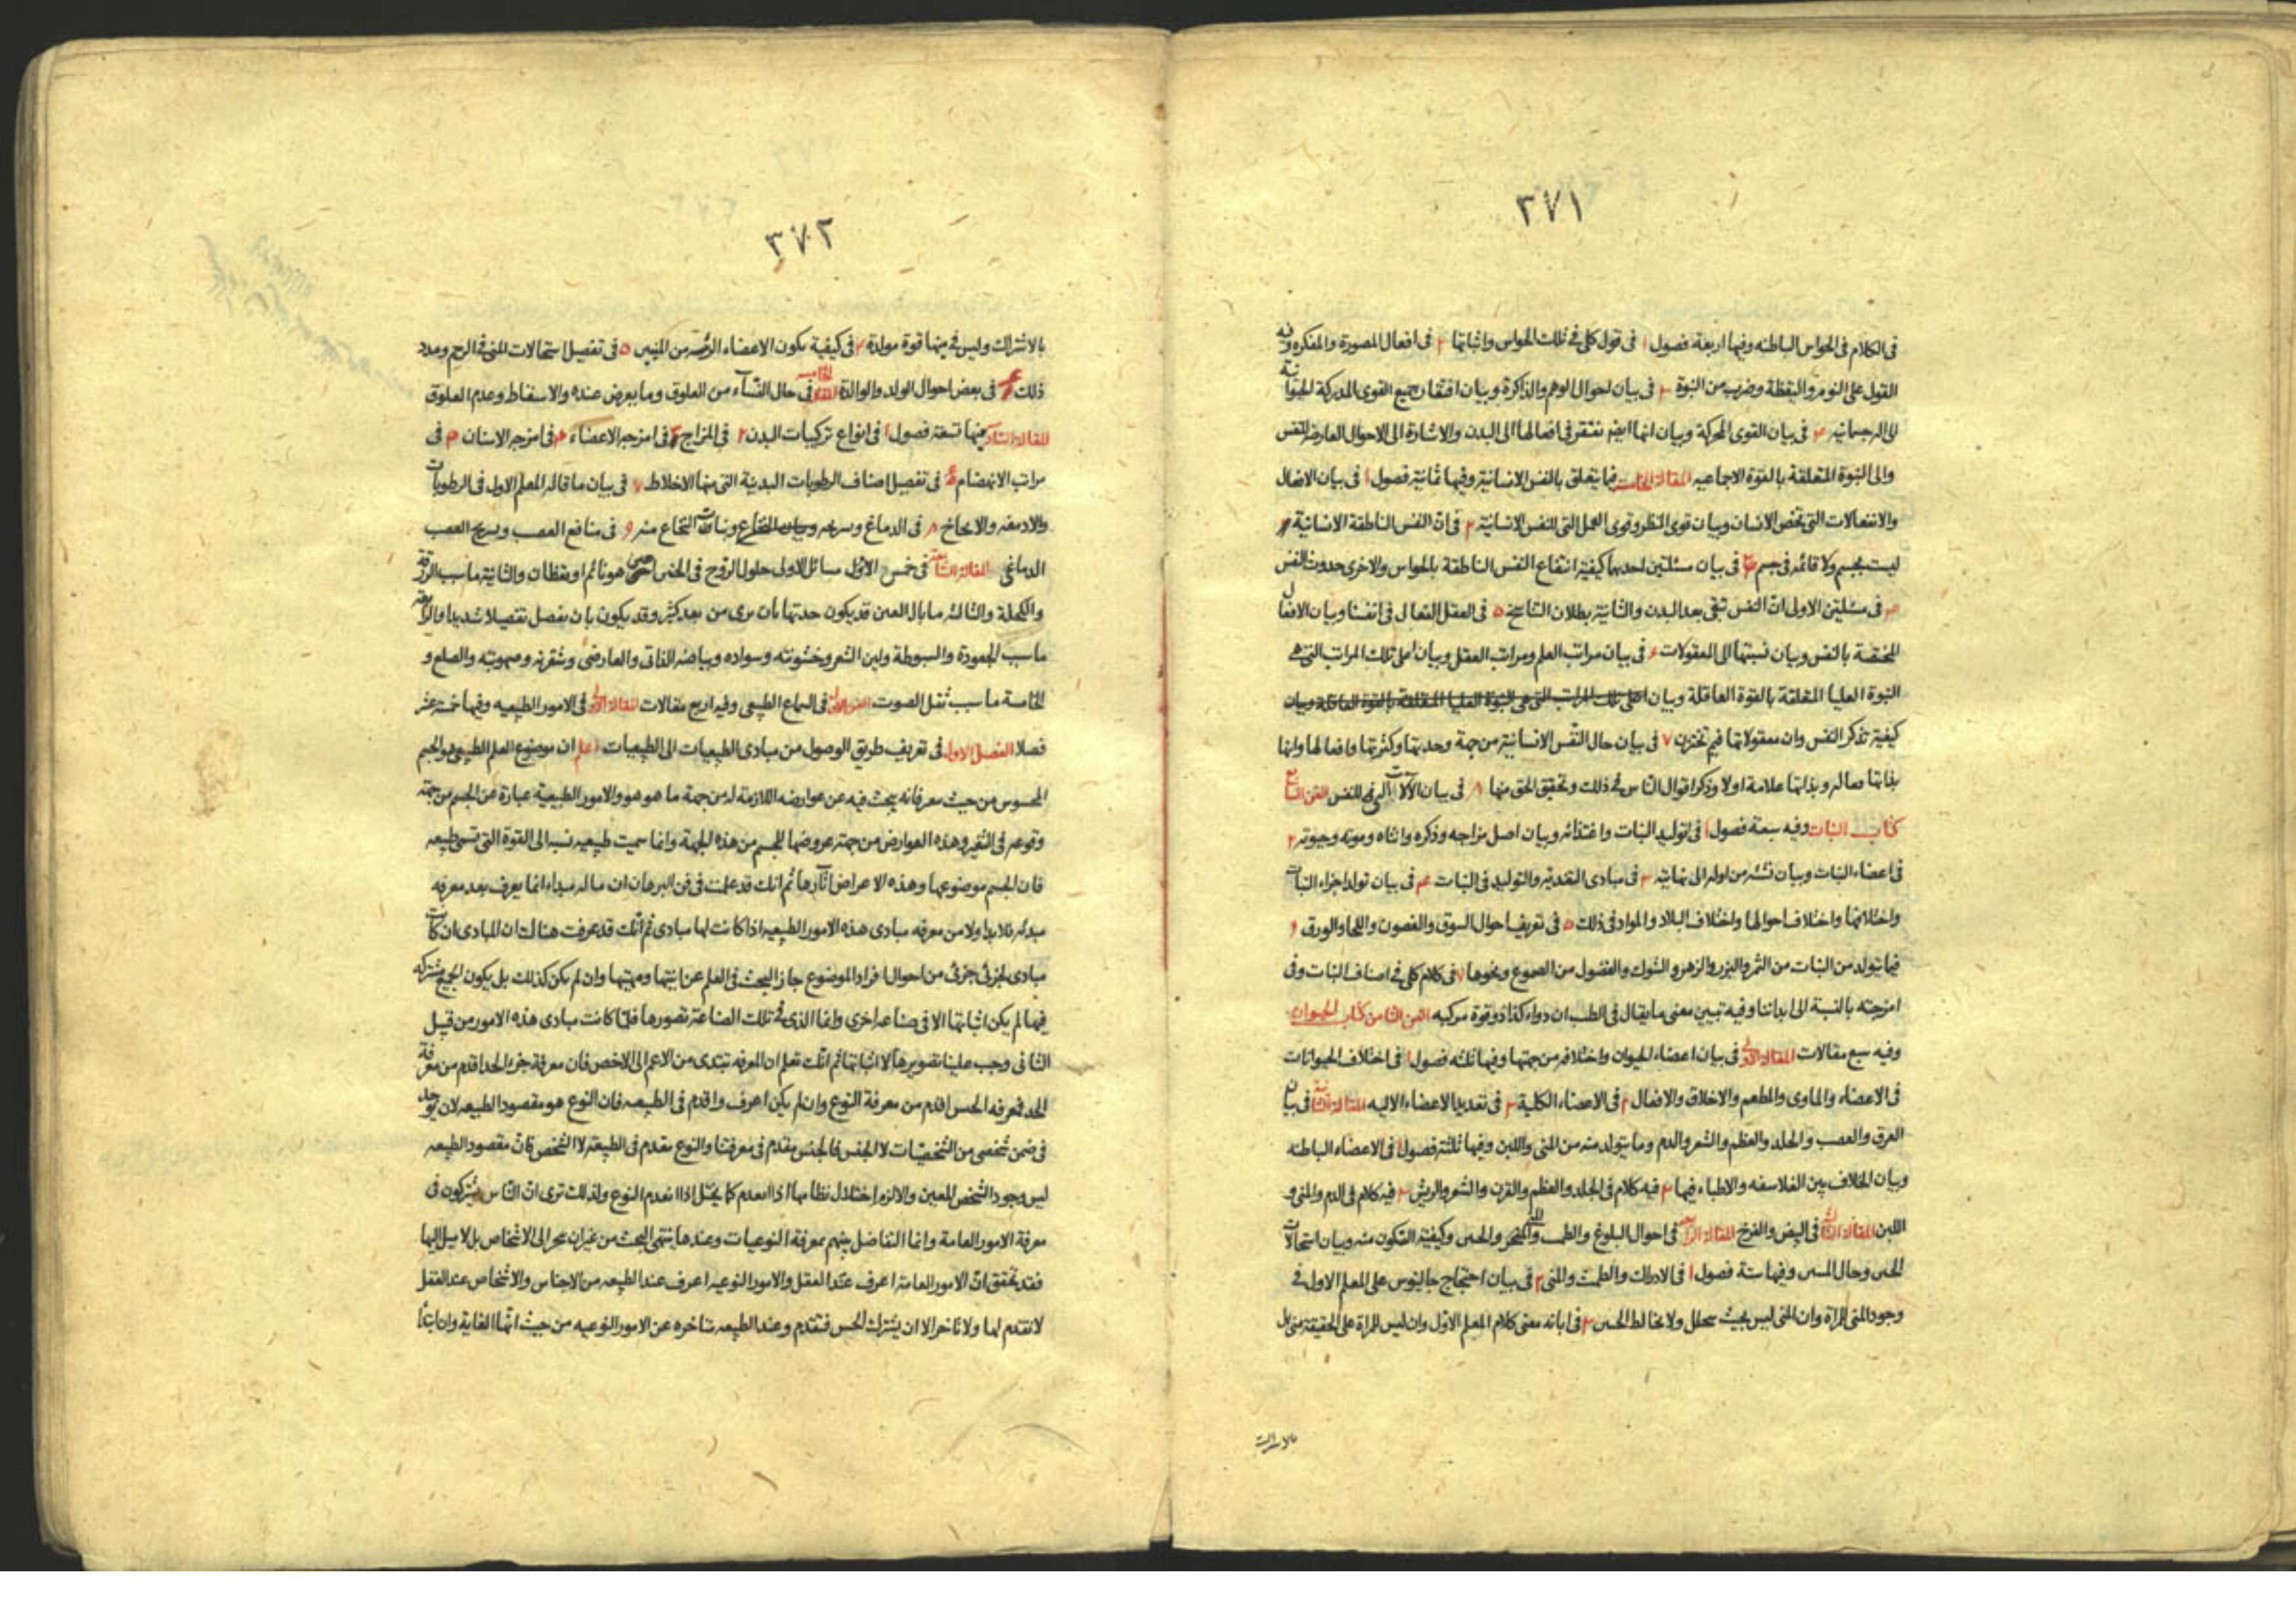 ٣٧١
فى الكلام فى الحواس الباطنه وفيها اربعة فصول ١ فى قول كلى فى تلك الحواس واثباتها ٢ فى افعال المصورة والمفكره وفيه
القول على النوم واليقظة وضرب من النبوة ٣ فى بيان احوال الوهم والذاكرة وبيان افتقار جميع القوى المدركة الحيوانية
الى اله جسمانيه ٤ فى بيان القوى المحركة وبيان انها ايضا تفتقر فى افعالها الى البدن والاشارة الى الاحوال العارضه للنفس
والى النبوة المتعلقة بالقوة الاجماعيه المقالة الخامسة فيما يتعلق بالنفس الانسانية وفيها ثمانية فصول ١ فى بيان الافعال
والانفعالات التى تخص الانسان وبيان قوى النظر وقوى العمل التى للنفس الانسانية ٢ فى ان النفس الناطقة الانسانية
ليست بجسم ولا قائمه فى جسم ٣ فى بيان مسئلتين احديهما كيفية انتفاع النفس الناطقة بالحواس والاخرى حدوث النفس
٤ فى مسئلتين الاولى ان النفس تبقى بعد البدن والثانية بطلان التناسخ ٥ فى العقل الفعال فى انفسنا وبيان الافعال
المختصة بالنفس وبيان نسبتها الى المعقولات ٦ فى بيان مراتب العلم ومراتب العقل وبيان اعلى تلك المراتب التى هى
النبوة العليا المتعلقة بالقوة العاقلة وبيان اعلى تلك المراتب التى هى النبوة العليا المتعلقة بالقوة العاقلة وبيان
كيفية تذكر النفس وان معقولاتها فيم تختزن ٧ فى بيان حال النفس الانسانية من جهة وحدتها وكثرتها وافعالها وانها
بذاتها علامة اولا وذكر اقوال الناس فى ذلك وتحقيق الحق منها ٨ فى بيان الآلات التى للنفس الفن السابع
كتاب النبات وفيه سبعة فصول ١ فى توليد النبات واغتذائه وبيان اصل مزاجه وذكره وانثاه وموته وحيوته ٢
فى اعضاء النبات وبيان نشئه من اوله الى نهايته ٣ فى مبادى التغذية والتوليد فى النبات ٤ فى بيان تولد اجزاء النبات
واختلافها واختلاف احوالها واختلاف البلاد والمواد فى ذلك ٥ فى تعريف احوال السوق والغصون واللحا والورق ٦
فيما يتولد من النبات من الثمر والبزر والزهر والشوك والفضول من الصموغ ونحوها ٧ فى كلام كلى فى اصناف النبات وفى
امزجته بالنسبة الى ابداننا وفيه تبيين معنى ما يقال فى الطب ان دواء كذا ذو قوة مركبه الفن الثامن كتاب الحيوان
وفيه سبع مقالات المقالة الاولى فى بيان اعضاء الحيوان واختلافه من جهتها وفيها ثلثه فصول ١ فى اختلاف الحيوانات
فى الاعضاء والماوى والمطعم والاخلاق والافعال ٢ فى الاعضاء الكلية ٣ فى تعديد الاعضاء الاليه المقالة الثانية فى بيان
العرق والعصب والجلد والعظم والشعر والدم وما يتولد منه من المنى واللبن وفيها ثلثة فصول ١ فى الاعضاء الباطنه
وبيان الخلاف بين الفلاسفه والاطباء فيها ٢ فيه كلام فى الجلد والعظم والقرن والشعر والريش ٣ فيه كلام فى الدم والمنى و
اللبن المقالة الثالثة فى البيض والفرخ المقالة الرابعة فى احوال البلوغ والطمث والمنى وكيفية التكون منه وبيان استحالات
وفيها ستة فصول ١ فى الادراك والطمث والمنى ٢ فى بيان احتجاج جالينوس على المعلم الاول فى
وجود المنى للمراة وان المنى ليس بحيث يتحلل ولا يخالط الجنين ٣ فى ابانه معنى كلام المعلم الاول وان ليس للمراة على الحقيقة منى بل
بالاشتراك
٣٧٢
بالاشتراك وليس فى منيها قوة مولدة ٤ فى كيفية تكون الاعضاء الرئيسة من المنيين ٥ فى تفصيل استحالات المنى فى الرحم ومدد
ذلك ٦ فى بعض احوال الولد والوالدة المقالة الخامسة فى حال النساء من العلوق وما يعرض عنده والاسقاط وعدم العلوق
المقالة السادسة فيها تسعة فصول ١ فى انواع تركيبات البدن ٢ فى المزاج ٣ فى امزجه الاعضاء ٤ فى امزجه الاسنان ٥ فى
مراتب الانهضام ٦ فى تفصيل اصناف الرطوبات البدنية التى منها الاخلاط ٧ فى بيان ما قاله المعلم الاول فى الرطوبات
والادمغه والامخاخ ٨ فى الدماغ وتشريحه وبيان النخاع ونبات النخاع منه ٩ فى منافع العصب وتشريح العصب
الدماغى المقالة السابعة فى خمس مسائل الاولى حلول الروح فى الجنين اهو نائم او يقظان والثانية ما سبب الزرقة
والكحلة والثالثه ما بال العين قد يكون حدتها بان يرى من بعد كثير وقد يكون بان يفصل تفصيلا شديدا والرابعة
ما سبب الجعودة والسبوطة ولين الشعر وخشونته وسواده وبياضه الذاتى والعارضى وشقرته وصهوبته والصلع و
الخامسة ما سبب ثقل الصوت الفن الاول فى السماع الطبيعى وفيه اربع مقالات المقالة الاولى فى الامور الطبيعيه وفيها خمسة عشر
فصلا الفصل الاول فى تعريف طريق الوصول من مبادى الطبيعيات الى الطبيعيات اعلم ان موضوع العلم الطبيعى هو الجسم
المحسوس من حيث معرفانه يبحث فيه عن عوارضه اللازمة له من جهة ما هو هو والامور الطبيعية عبارة عن الجسم من جهة
وقوعه فى التغير وهذه العوارض من جهة عروضها للجسم من هذه الجهة وانما سميت طبيعيه نسبه الى القوة التى تسمى طبيعه
فان الجسم موضوعها وهذه الاعراض آثارها ثم انك قد علمت فى فن البرهان ان ما له مبداء انما يعرف بعد معرفه
مبدئه فلا بد اولا من معرفه مبادى هذه الامور الطبيعيه اذا كانت لها مبادى ثم انك قد عرفت هنالك ان المبادى ان كانت
مبادى لجزئى جزئى من احوال افراد الموضوع جاز البحث فى العلم عن انيتها ومهيتها وان لم يكن كذلك بل يكون الجميع مشتركه
فيها لم يكن اثباتها الا فى صناعه اخرى وانما الذى فى تلك الصناعة تصورها فلما كانت مبادى هذه الامور من قبيل
الثانى وجب علينا تصويرها لا اثباتها ثم انك تعلم ان المعرفه تبتدى من الاعم الى الاخص فان معرفة جزء الحد اقدم من معرفة
الحد فمعرفه الجنس اقدم من معرفة النوع وان لم يكن اعرف واقدم فى الطبيعه فان النوع هو مقصود الطبيعه لان يوجد
فى ضمن شخص من الشخصيات لا الجنس فالجنس مقدم فى معرفتنا والنوع مقدم فى الطبيعة لا الشخص فان مقصود الطبيعه
ليس وجود الشخص المعين والا لزم اختلال نظامها اذا انعدم كما يختل اذا انعدم النوع ولذلك ترى ان الناس مشتركون فى
معرفة الامور العامة وانما التفاضل بينهم بمعرفة النوعيات وعندها ينتهى البحث من غير ان ينجر الى الاشخاص بل لا ميل اليها
فقد تحقق ان الامور العامة اعرف عند العقل والامور النوعيه اعرف عند الطبيعه من الاجناس والاشخاص عند العقل
لا تقدم لها ولا تاخر الا ان يشترك الحس فتقدم وعند الطبيعه متاخره عن الامور النوعيه من حيث انها الغاية وان ابتدأ